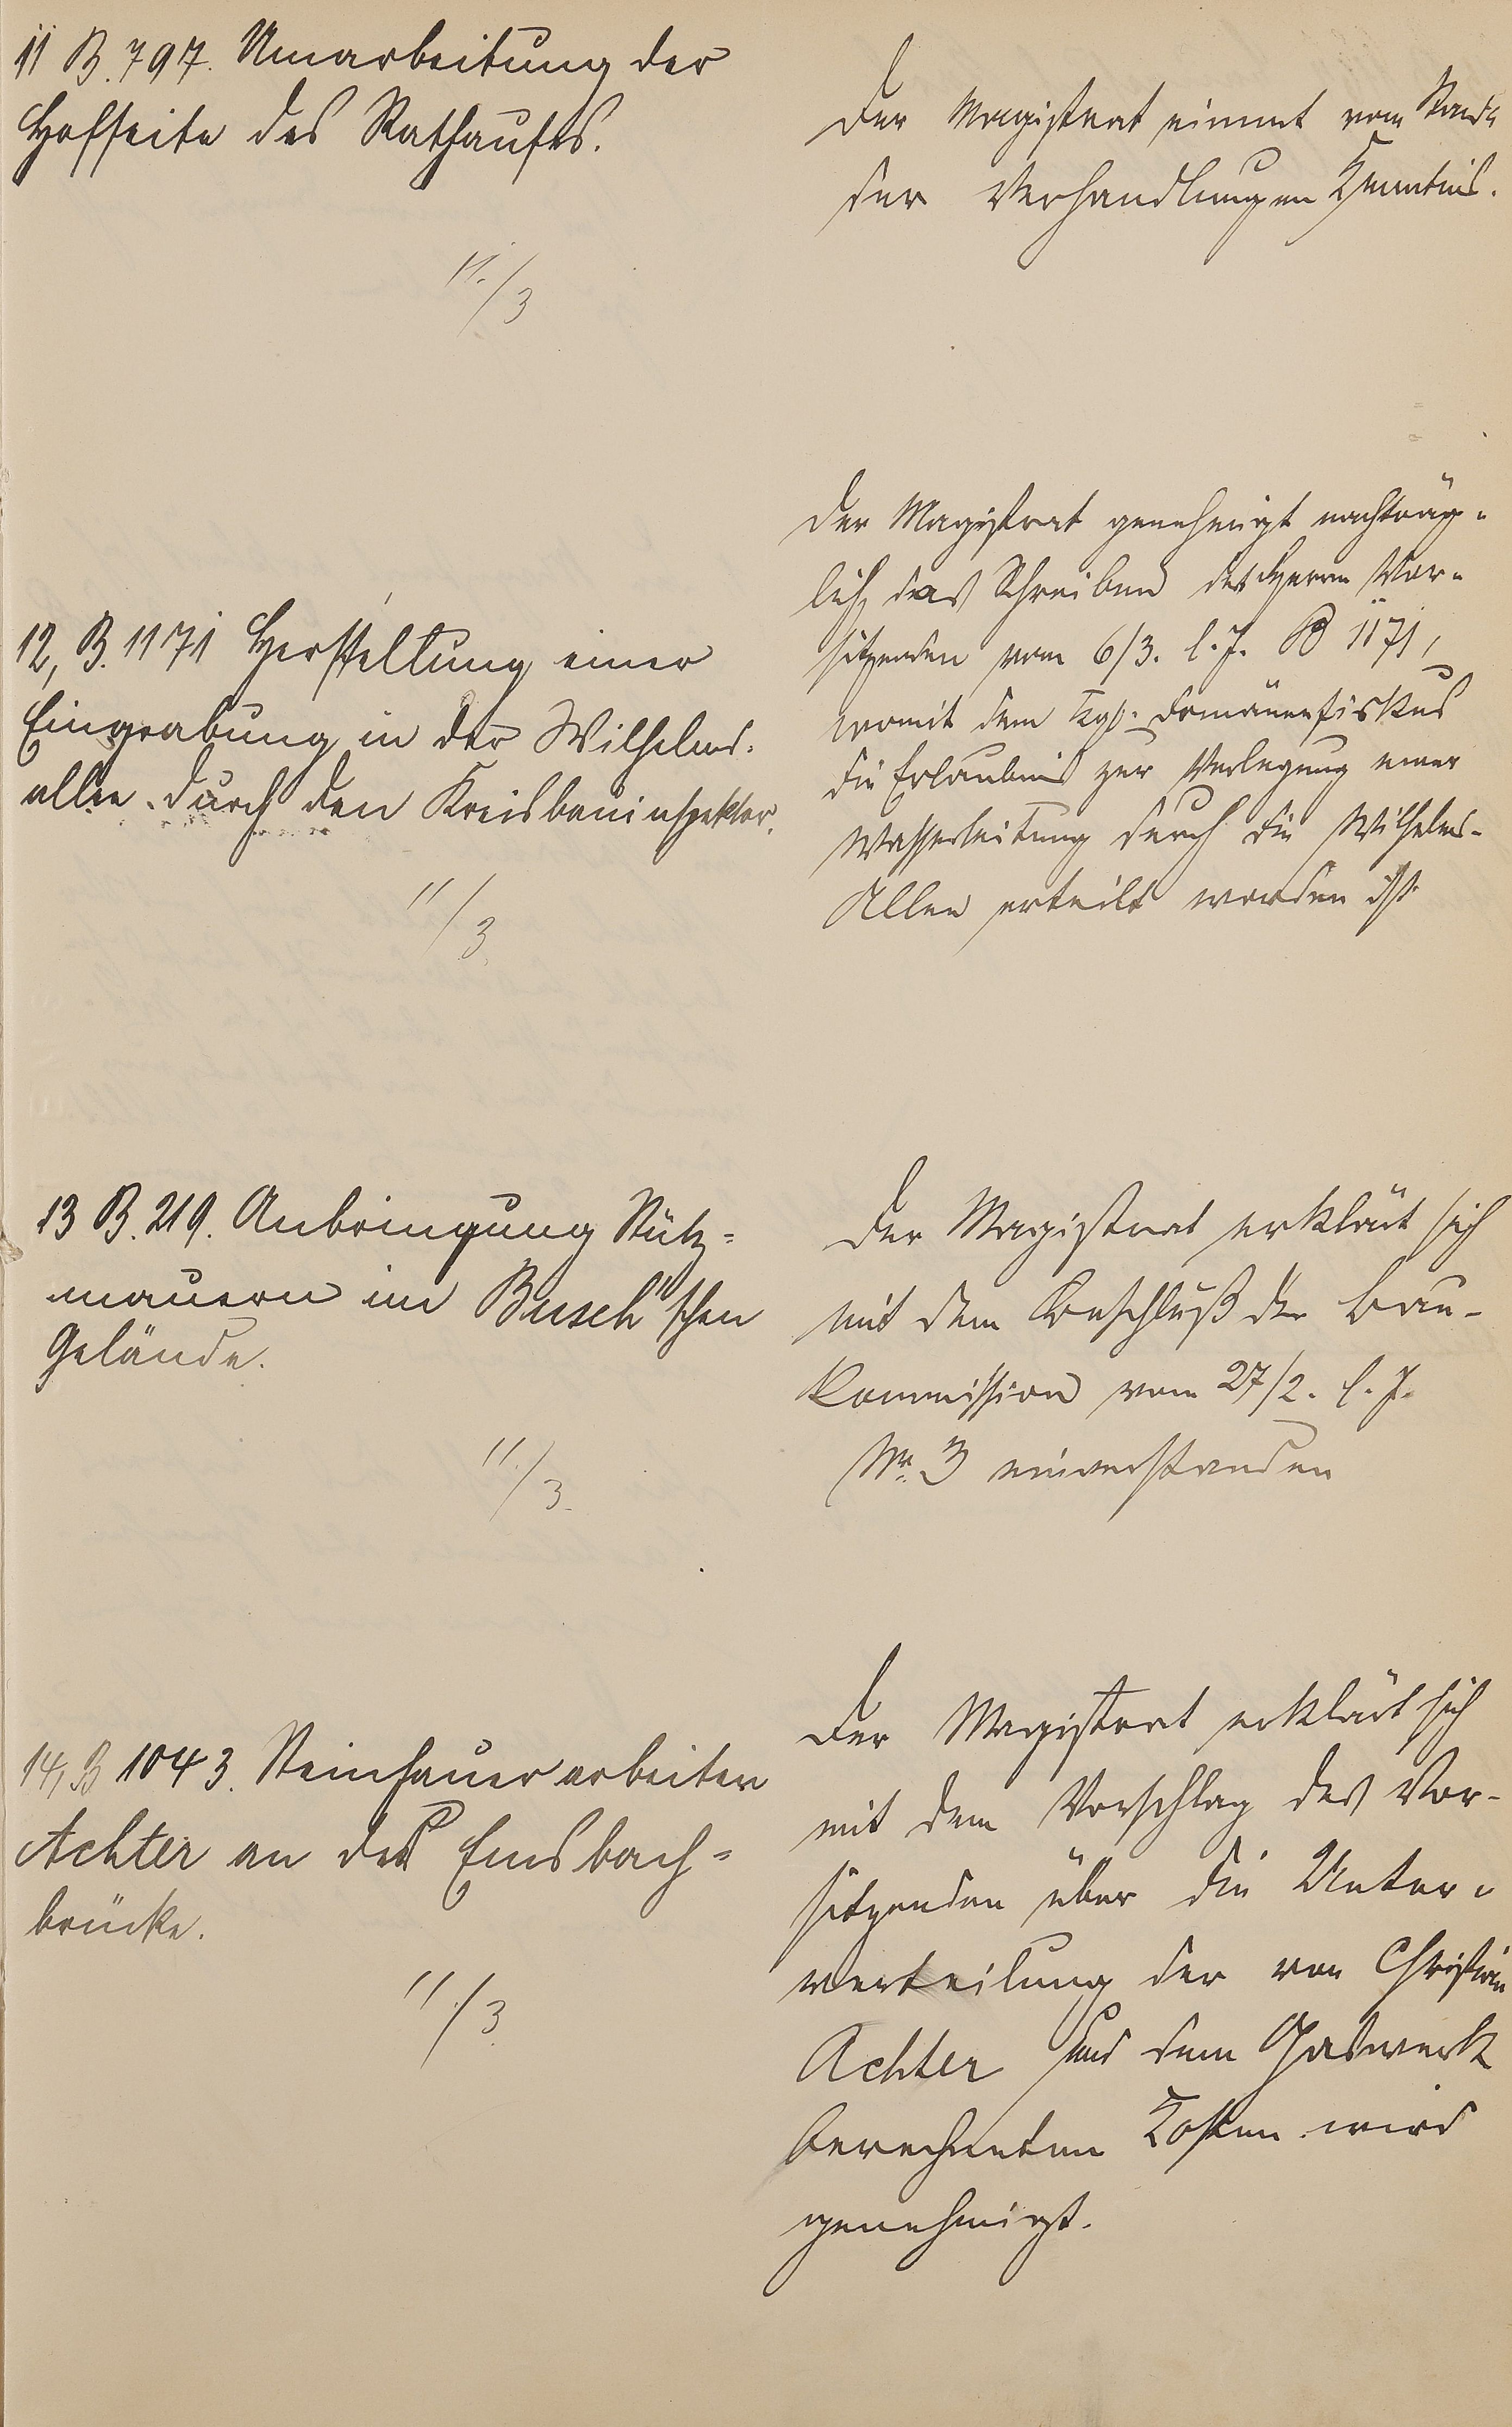 11 B. 797. Umarbeitung der
Hofseite des Rathauses.
11./3
Der Magistrat nimmt vom Stande
der Verhandlungen Kenntnis.
12, B. 1171 Herstellung einer
Eingrabung in der Wilhelms-
allee durch den Kreisbauinspektor.
11/3
Der Magistrat genehmigt nachträg-
lich das Schreiben des Herrn Vor-
sitzenden vom 6/3. l. J. B 1171,
womit dem Kgl. Domänenfiskus
die Erlaubnis zur Verlegung einer
Wasserleitung durch die Wilhelms-
Allee erteilt worden ist
13 B. 219. Anbringung Stütz-
mauern im Busch'schen
Gelände.
11./3.
Der Magistrat erklärt sich
mit dem Beschluß der Bau-
Kommission vom 27/2. l. J.
Nr. 3 einverstanden
14, B 1043. Steinhauerarbeiten
Achter an der Emsbach-
brücke.
11/3
Der Magistrat erklärt sich
mit dem Vorschlag des Vor-
sitzenden über die Unter-
verteilung der von Christian
Achter und dem Gaswerk
berechneten Kosten wird
genehmigt.